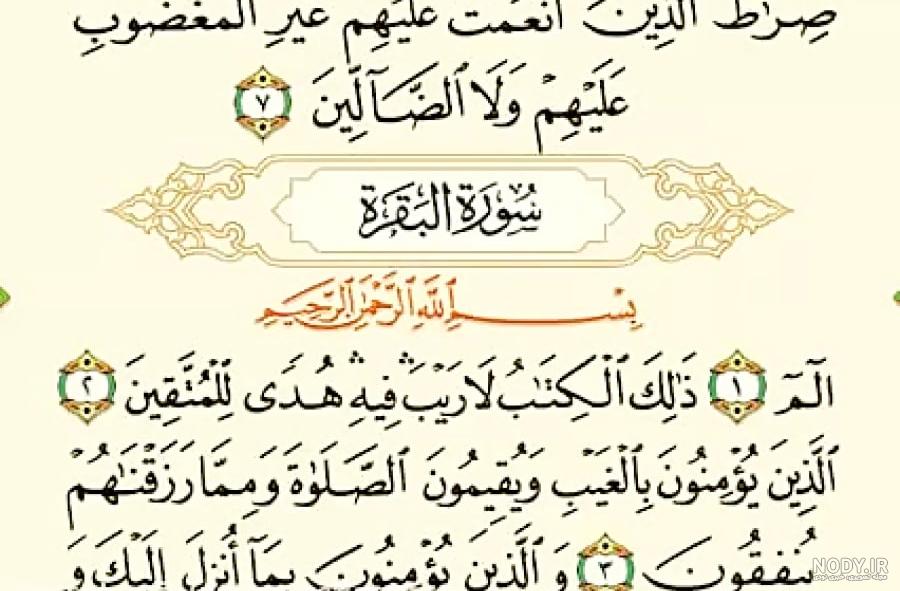 صِرَٰطَ ٱلَّذِينَ أَنْعَمْتَ عَلَيْهِمْ غَيْرِ ٱلْمَغْضُوبِ
عَلَيْهِمْ وَلَا ٱلضَّآلِّينَ ٧
سُورَةُ البَقَرَةِ
بِسْمِ ٱللَّهِ ٱلرَّحْمَٰنِ ٱلرَّحِيمِ
الٓمٓ ١ ذَٰلِكَ ٱلْكِتَٰبُ لَا رَيْبَ ۛ فِيهِ ۛ هُدًى لِّلْمُتَّقِينَ ٢
ٱلَّذِينَ يُؤْمِنُونَ بِٱلْغَيْبِ وَيُقِيمُونَ ٱلصَّلَوٰةَ وَمِمَّا رَزَقْنَٰهُمْ
يُنفِقُونَ ٣ وَٱلَّذِينَ يُؤْمِنُونَ بِمَآ أُنزِلَ إِلَيْكَ وَ
NODY.IR